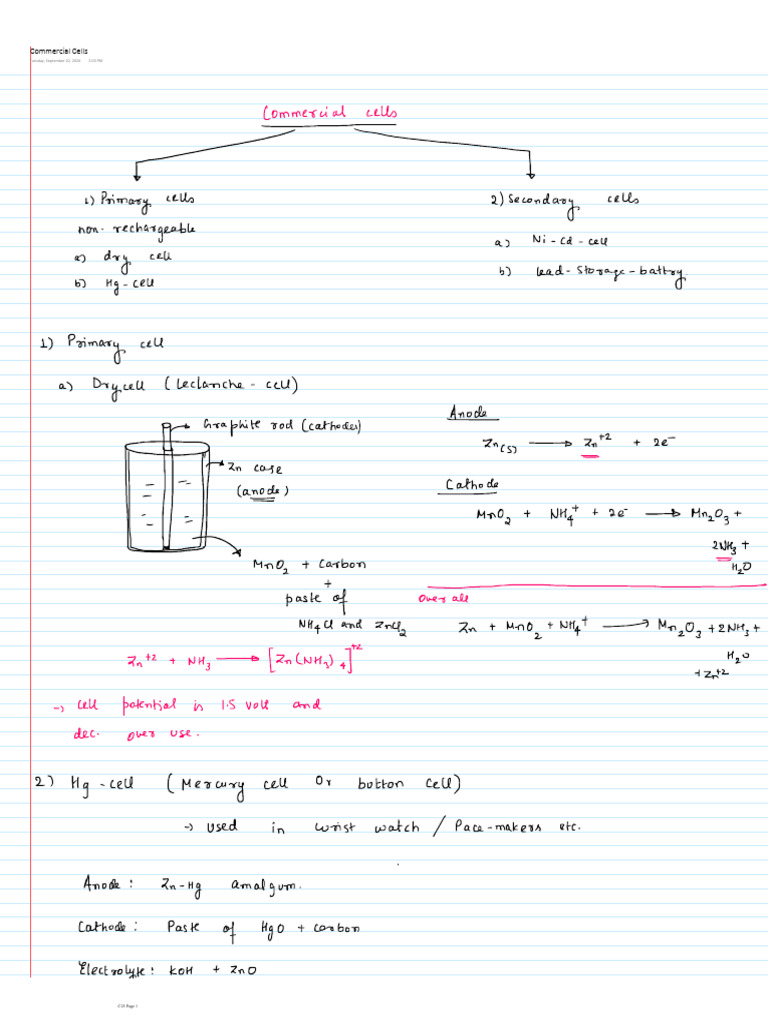 Commercial Cells
2:20 PM
Commercial cells
1) Primary cells
non-rechargeable
a) dry cell
b) Hg-cell
2) Secondary cells
a) Ni-Cd-cell
b) Lead-Storage-battry
1) Primary cell
a) Dry cell (Leclanche-cell)
Graphite rod (cathodes)
Zn case
(anode)
MnO2 + Carbon
+
paste of
NH4Cl and ZnCl2
Anode
Zn(s) ⟶ Zn+2 + 2e-
Cathode
MnO2 + NH4+ + 2e- ⟶ Mn2O3 +
2NH3 +
H2O
Over all
Zn + MnO2 + NH4+ ⟶ Mn2O3 + 2NH3 +
H2O
+ Zn+2
Zn+2 + NH3 ⟶ [Zn(NH3)4]+2
→ Cell potential is 1.5 volt and
dec. over use.
2) Hg-cell (Mercury cell Or button cell)
→ used in wrist watch / Pace-makers etc.
Anode: Zn-Hg amalgum.
Cathode: Paste of HgO + carbon
Electrolyte: KOH + ZnO